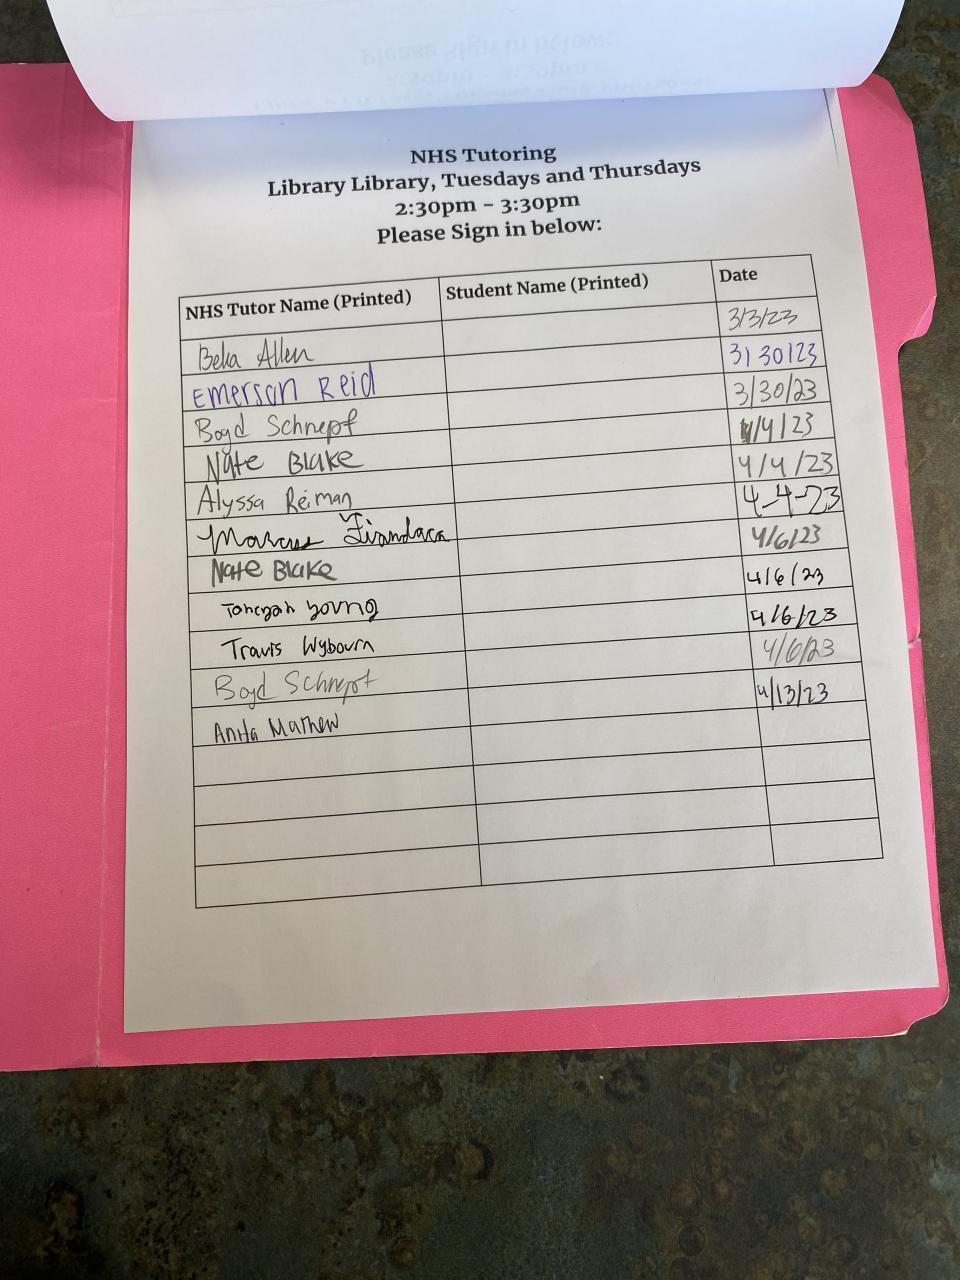 NHS Tutoring
Library Library, Tuesdays and Thursdays
2:30pm - 3:30pm
Please Sign in below:
NHS Tutor Name (Printed) Student Name (Printed) Date
Bella Allen 3/3/23
Emerson Reid 3/30/23
Boyd Schnepf 3/30/23
Nate Blake 4/4/23
Alyssa Reiman 4/4/23
Marcus Fiandaca 4-4-23
Nate Blake 4/6/23
young 4/6/23
Travis Wybourn 4/6/23
Boyd Schnepf 4/6/23
Anita Mathew 4/13/23